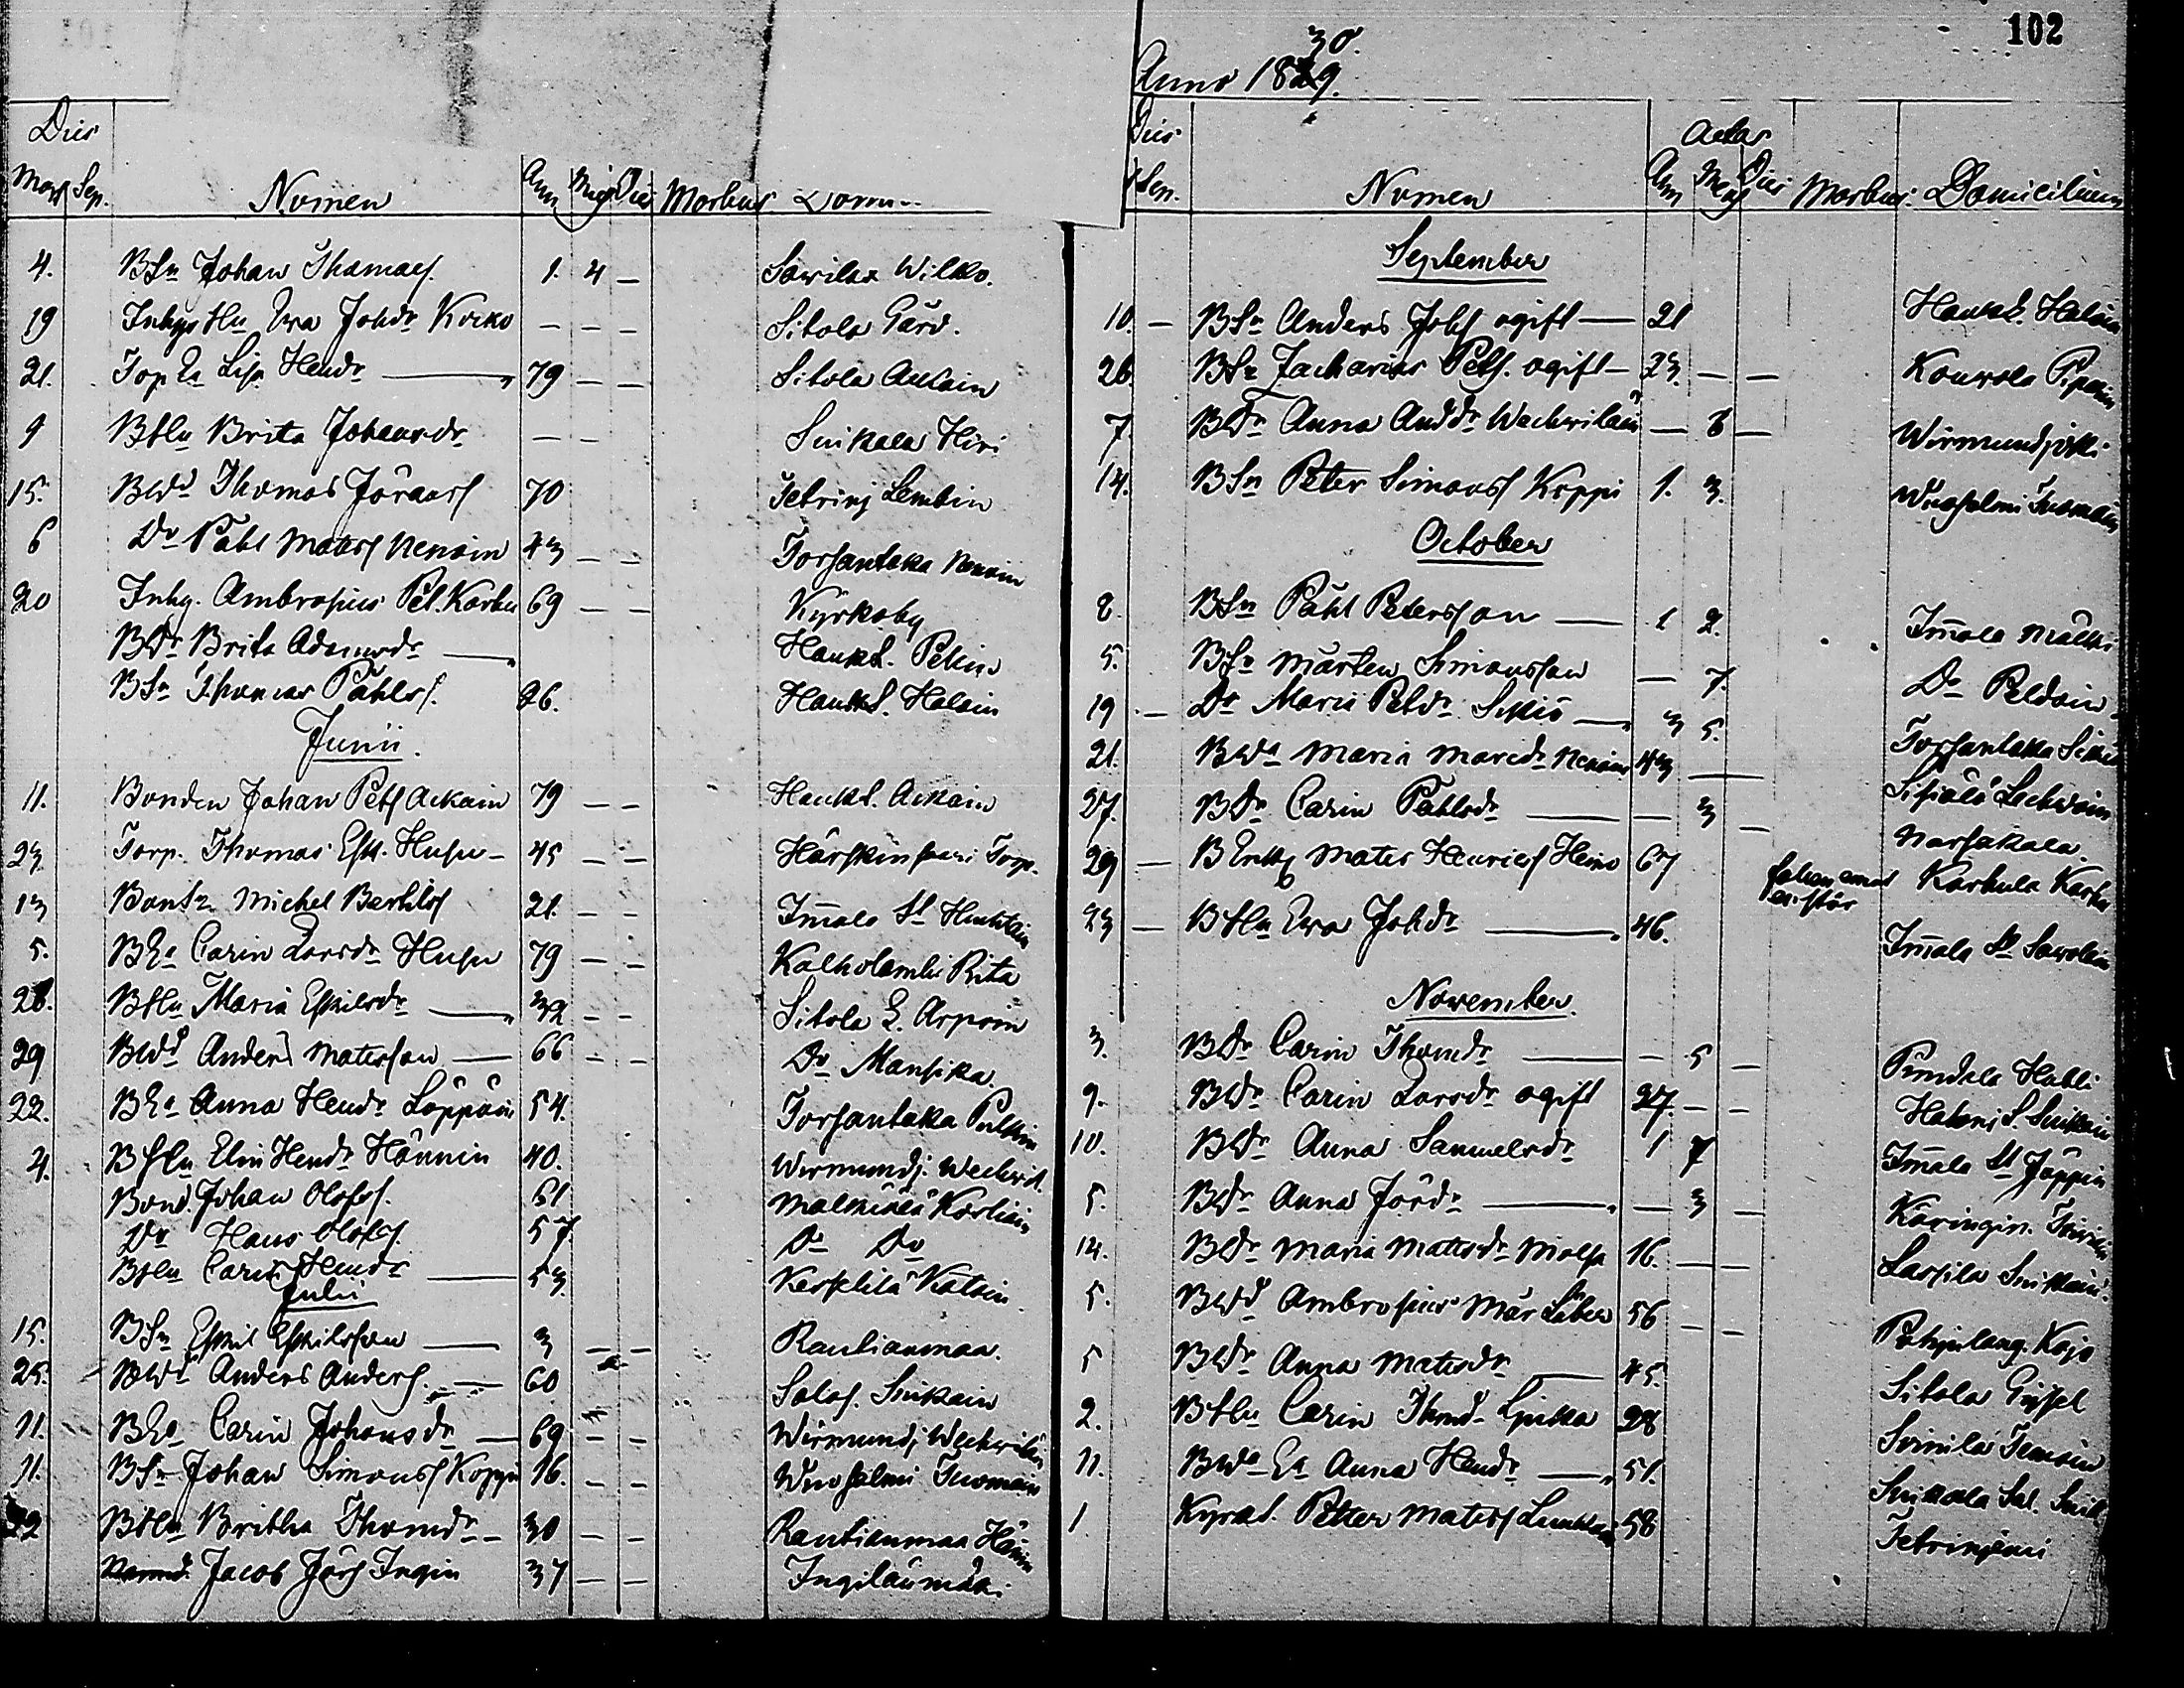 Dies
Mort Sep. Nomen Ann Mens Dies Morbus Dom
4. BSn Johan Thomass. 1. 4 — Sawilax Wilko.
19 Inhys Hu Ewa Johdr Kocko — — — Sitola Gård.
21. Torp Ea Lisa Hendr — 79 — — Sitola Aukain
9 BHu Brita Johansdr — — Suikala Hiri
15. BWd Thomas Jöranss 70 Jetrinj Lembin
6 Do Påhl Matss Nenoin 43 — — Torsantaka Nenoin
20 Inhy. Ambrosius Pet. Korhu 69 — — Kyrkoby
BDr Brita Adamsdr — Haukl. Pekin
BSn Thomas Påhlss. 26. Haukl. Halain
Junii.
11. Bonden Johan Petss Ackain 79 — — Haukl. Ackain
23. Torp. Thomas Esk. Husu — 45 — — Härskinsaari Torp.
13 Bonds. Michel Bertilss 21. — — Imala St
5. BEa Carin Larsdr Husu 79 — — Kalholambi Rita
28. BHu Maria Eskilsdr — 32 — — Sitola E. Arpoin
29 BWd Anders Matsson — 66 — — Do Mansika.
22. BEa Anna Hendr Löppöin 54. Torsantaka Pulkin
4. BHu Elin Hendr Hännin 40. Wirmundj. Wechwil.
Bond. Johan Olofss. 61 Malkiälä Korliain
Do Hans Olofss 57 Do Do
BHu Carin Hendr — 53. Keskelitä Katain
Julii
15. BSn Eskil Eskilsson — 3 — — Rautianmaa.
25. BWd Anders Anderss. — 60 Salos. Suikain
11. BEa Carin Johansdr — 69 — — Wirmundj Wechwiläin
11. BSn Johan Simonss Koppi 16. — — Wuosalmi Tuomain
22 BHu Britha Thomdr — 30 — — Rautianmaa Hännin
Jacob Jörss Ingin 37 — — Ingiläinmäki
102
30.
Anno 1829.
Dies Aetas
Sep. Nomen Ann Mens Dies Morbus: Domicilium
September
10. — BSn Anders Johss ogift — 21 Haukl. Halain
26 BSn Zacharias Petss. ogift — 23. — — Kouwola Piparin
7. BDr Anna Anddr Wechwiläin — 6 — Wirmundjoki
14. BSn Peter Simonss Koppi 1. 3. Wuosalmi Tuomain
October
8. BSn Påhl Petersson — 1 2. Imala Mälki
5. BSn Mårten Simonsson — 7. Do Peldoin
19 — Do Maria Petdr Sikiö — 3 5. Torsantaka Sikiö
21. BWa Maria Marcdr Nenoin 43 — Sipiälä Lechwäin
27. BDr Carin Påhlsdr — — 3 — Narsakala.
29 — BEnkl Mats Henricss Heino 67 Karhula Karhu
23 — BHu Ewa Johdr — 46. Imala St Sawolain
November.
3. BDr Carin Thomdr — — 5 — Pundala Halli
9. BDr Carin Larsdr ogift 27. — — Haloni S. Suikain
10. BDr Anna Samuelsdr 1 7 Imala St Jäppin
5. BDr Anna Jördr — — 3 — Käringin.
14. BDr Maria Matsdr Molsa 16. — — Lassila Suikkain.
5. BWd Ambrosius Mår Läber 56 — — Pohjalang. Kojo
5 BDr Anna Matsdr — 45. Sitola
2. BHu Carin Thmd. 28
11. BWa Ea Anna Hendr — 51. Suikala Sal. Suik
1. Kyrkd. Petter Matss 58 Jetrinjeni